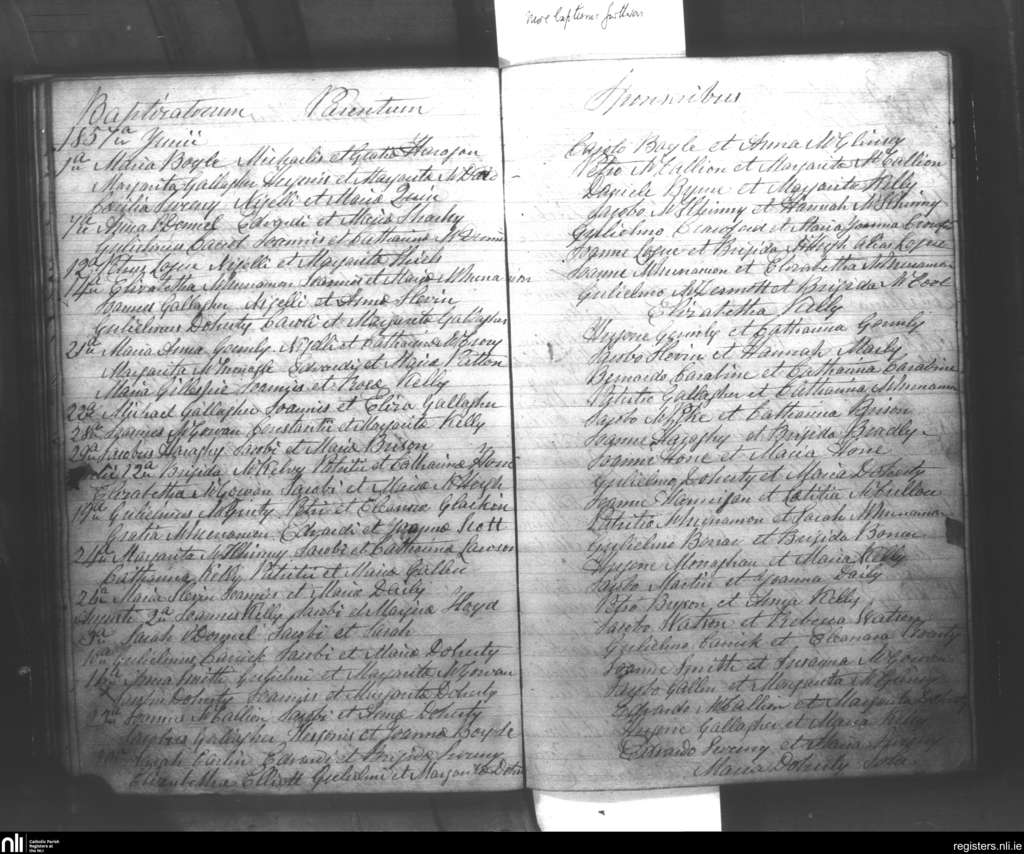 Baptizatorum Parentum
1857 Junii
1a Maria Boyle Michaelis et Gratia
Margarita Gallagher et Margarita McDaid
Cecilia Sweeny Nigelli et Maria Quin
7a Anna O'Donnel Edvardi et Maria Sharky
Joannis et Catharina
12a Petrus Logue Nigelli et Margarita
14a Elizabetha McMenamon Joannis et Maria McMenamon
Joannes Gallagher Nigelli et Anna Slevin
Gulielmus Doherty Caroli et Margarita Gallagher
21a Maria Anna Gormly Nigelli et Catharina
Margarita Edvardi et Maria Patton
Maria Gillespie Joannis et Rosa Kelly
22a Michael Gallagher Joannis et Eliza Gallagher
28a Joannes McGowan Constantii et Margarita Kelly
29a Jacobus Haraghy Jacobi et Maria Brison
12a Brigida McKelvy Patritii et Catharina
Elizabetha McGowan Jacobi et Maria McHugh
19a Gulielmus McGinty Petri et Eleanora Glackin
Gratia McMenamon Edvardi et Joanna Scott
24a Margarita McIlhinny Jacobi et Catharina Lawson
Catharina Kelly Patritii et Maria Gallen
26a Maria Slevin Joannis et Maria Daily
Augusti 2a Joannes Kelly Jacobi et Floyd
9a Sarah O'Donnel Jacobi et Sarah
10a Gulielmus Carrick Jacobi et Maria Doherty
16a Anna Smith Gulielmi et Margarita McGowan
Doherty Joannis et Margarita Doherty
Joannes McCallion Jacobi et Anna Doherty
Jacobus Gallagher Hugonis et Joanna Boyle
Sarah Carlin Edvardi et Brigida Sweeny
Elizabetha Elliott Gulielmi et Margarita
more baptisms further on
Sponsoribus
Boyle et Anna McGlinsy
Petro McCallion et Margarita McCallion
Daniele Byrne et Margarita Kelly
Jacobo McIlhinny et Hannah McIlhinny
Gulielmo Crawford et Maria Joanna
Joanne Logue et Brigida McHugh alias Logue
Joanne McMenamon et Elizabetha McMenamon
Gulielmo McDermott et Brigida McCool
Elizabetha Kelly
Hugone Gormly et Catharina Gormly
Jacobo Slevin et Hannah Maily
Bernardo Caroline et Catharina Caroline
Patritio Gallagher et Catharina McMenamon
Jacobo et Catharina Brison
Joanne Haraghy et Brigida Bradly
Joanne et Maria
Gulielmo Doherty et Maria Doherty
Joanne et Letitia McCullow
Patritio McMenamon et Sarah McMenamon
Gulielmo Bonar et Brigida Bonar
Hugone Monaghan et Maria Kelly
Jacobo Martin et Joanna Daily
Petro Bryson et Anna Kelly
Jacobo Watson et Rebecca Watson
Gulielmo Carrick et Eleanora
Joanne Smith et Susanna McGowan
Jacobo Gallen et Margarita McGinty
Edvardo McCallion et Margarita Doherty
Hugone Gallagher et Maria Kelly
Edvardo Sweeny et Maria
Maria Doherty Sola
nli
Catholic Parish
Registers at
the NLI
registers.nli.ie